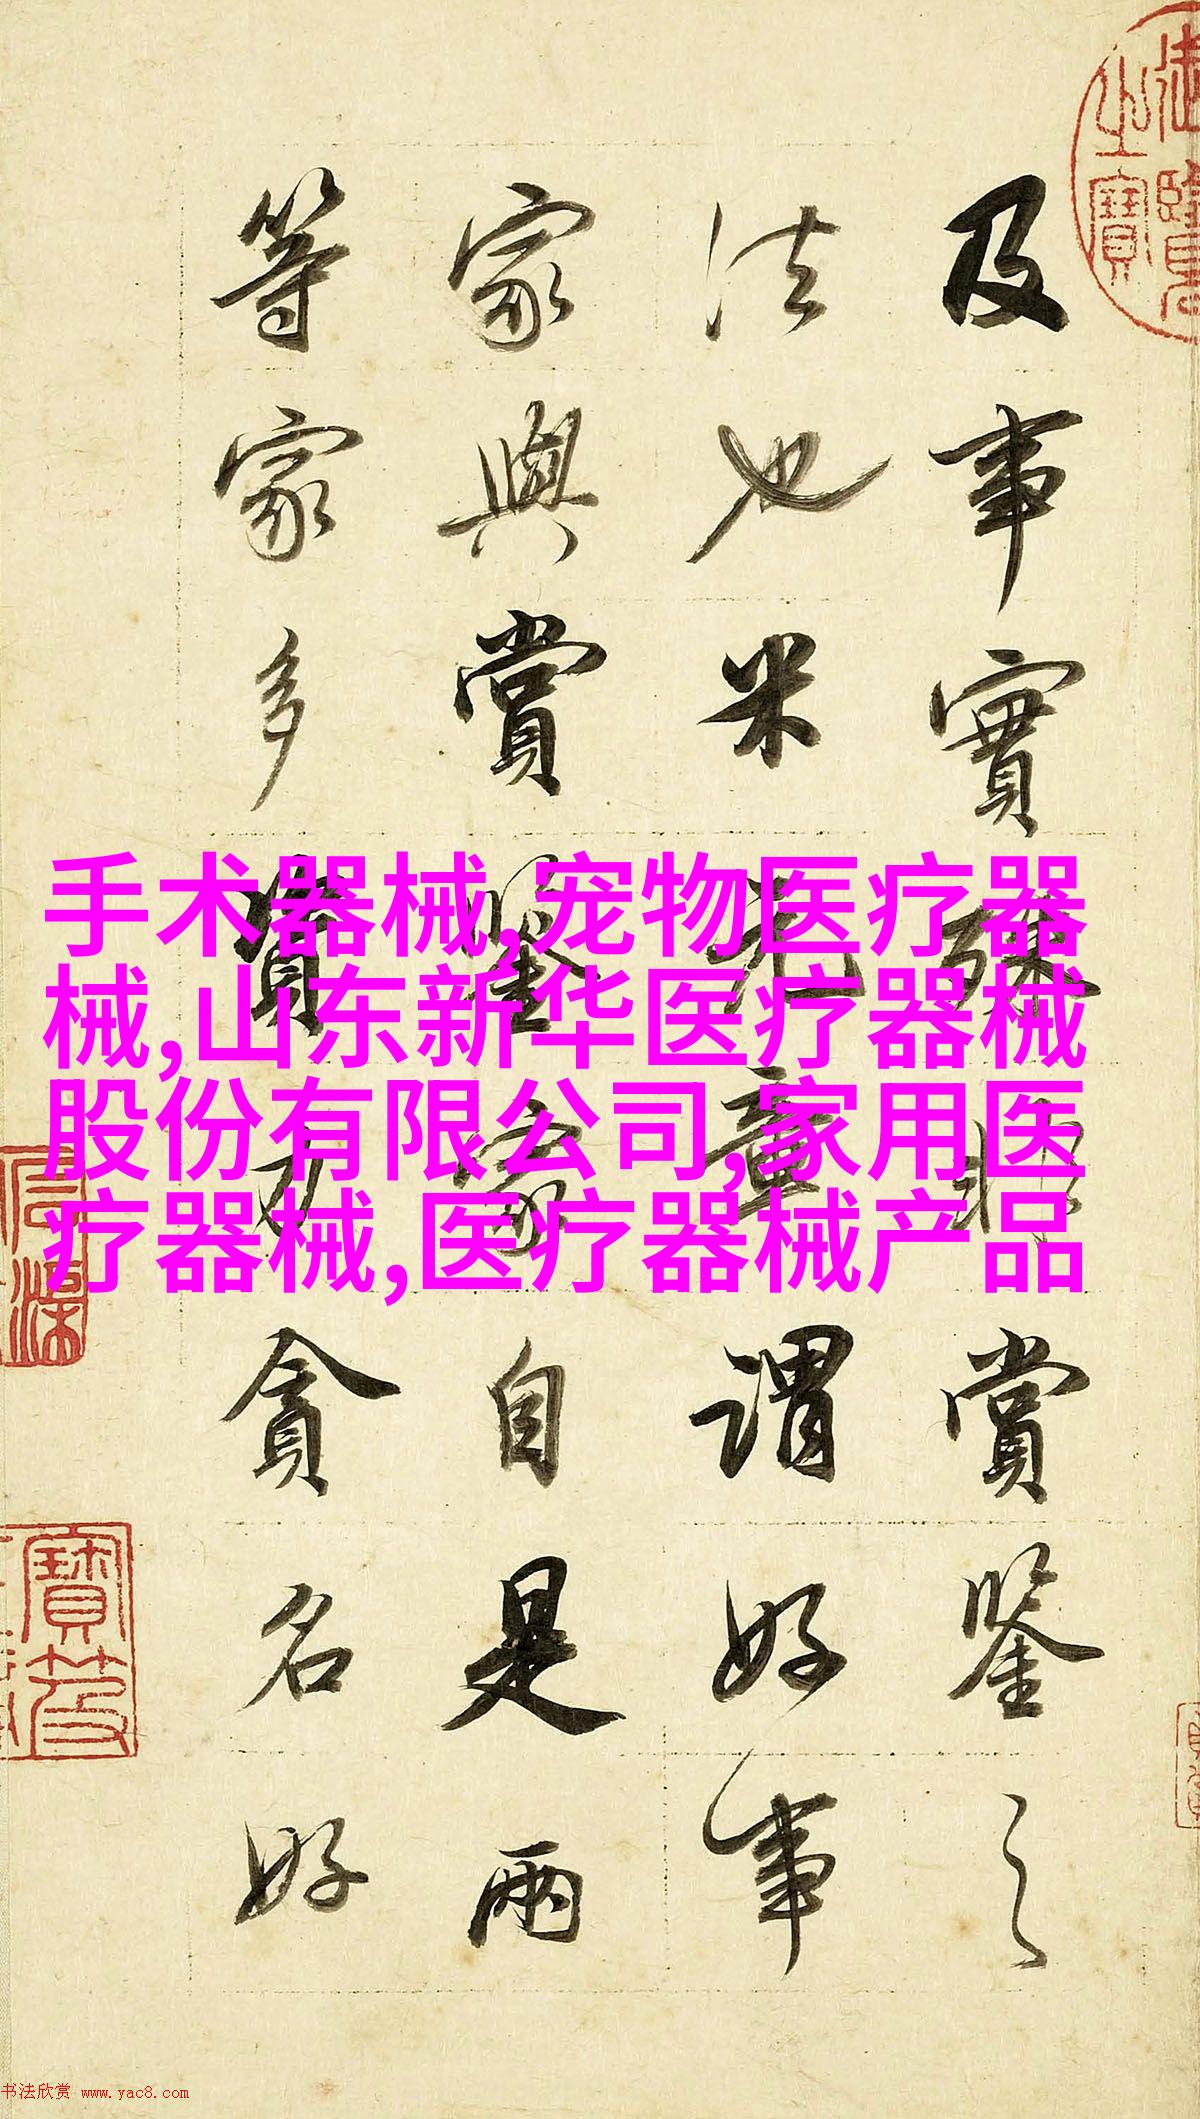 及事實殊非賞鑒之
法也米元章謂好事
家與賞鑒家自是兩
等家多資力貪名好
手术器械,宠物医疗器
械,山东新华医疗器械
股份有限公司,家用医
疗器械,医疗器械产品
书法欣赏 www.yac8.com